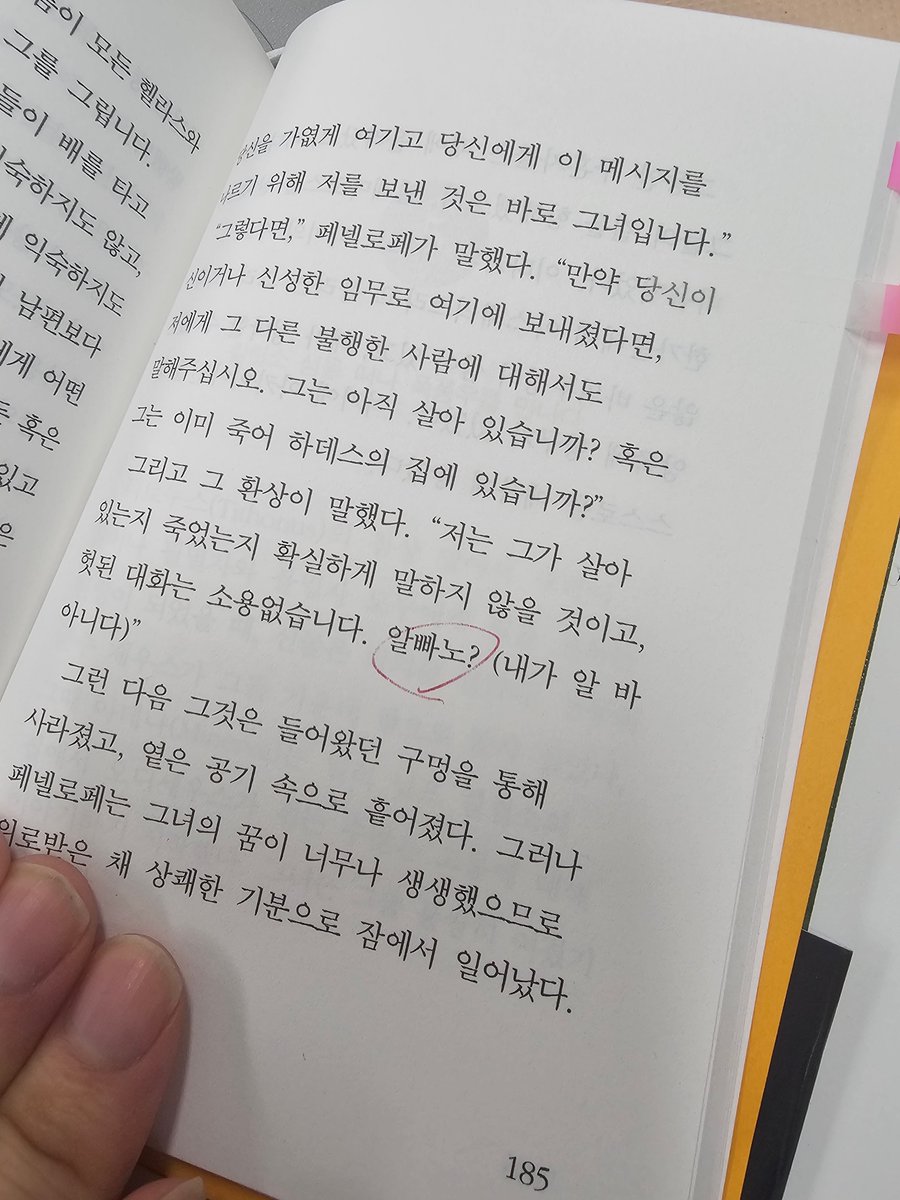 이 모든 헬라스와
그를 그립니다.
들이 배를 타고
익숙하지도 않고,
익숙하지도
남편보다
에게 어떤
혹은
있고
은
당신을 가엾게 여기고 당신에게 이 메시지를
나르기 위해 저를 보낸 것은 바로 그녀입니다.”
“그렇다면,” 페넬로페가 말했다. “만약 당신이
신이거나 신성한 임무로 여기에 보내졌다면,
저에게 그 다른 불행한 사람에 대해서도
말해주십시오. 그는 아직 살아 있습니까? 혹은
그는 이미 죽어 하데스의 집에 있습니까?”
그리고 그 환상이 말했다. “저는 그가 살아
있는지 죽었는지 확실하게 말하지 않을 것이고,
헛된 대화는 소용없습니다. 알빠노? (내가 알 바
아니다)”
그런 다음 그것은 들어왔던 구멍을 통해
사라졌고, 옅은 공기 속으로 흩어졌다. 그러나
페넬로페는 그녀의 꿈이 너무나 생생했으므로
위로받은 채 상쾌한 기분으로 잠에서 일어났다.
185